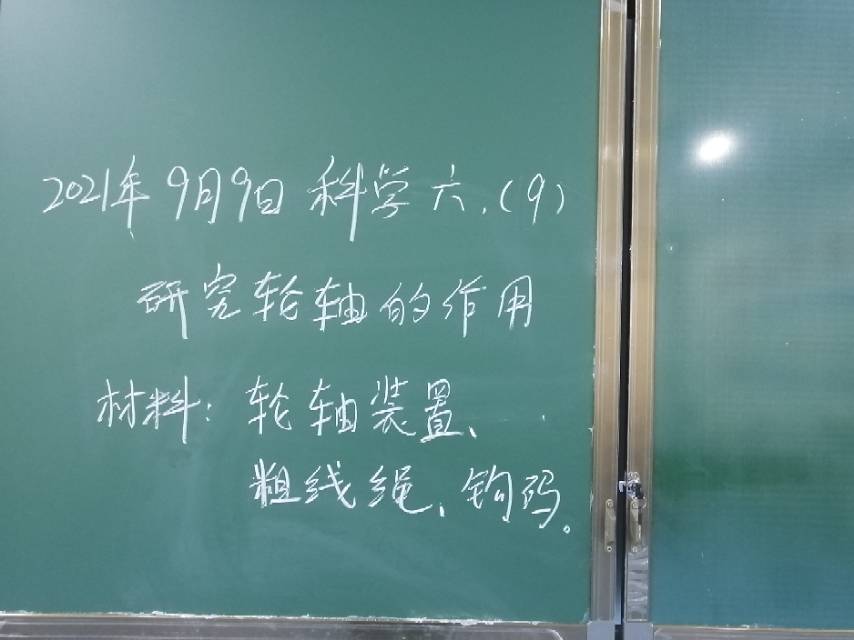 2021年9月9日 科学 六.(9)
研究轮轴的作用
材料：轮轴装置、
粗线绳、钩码。